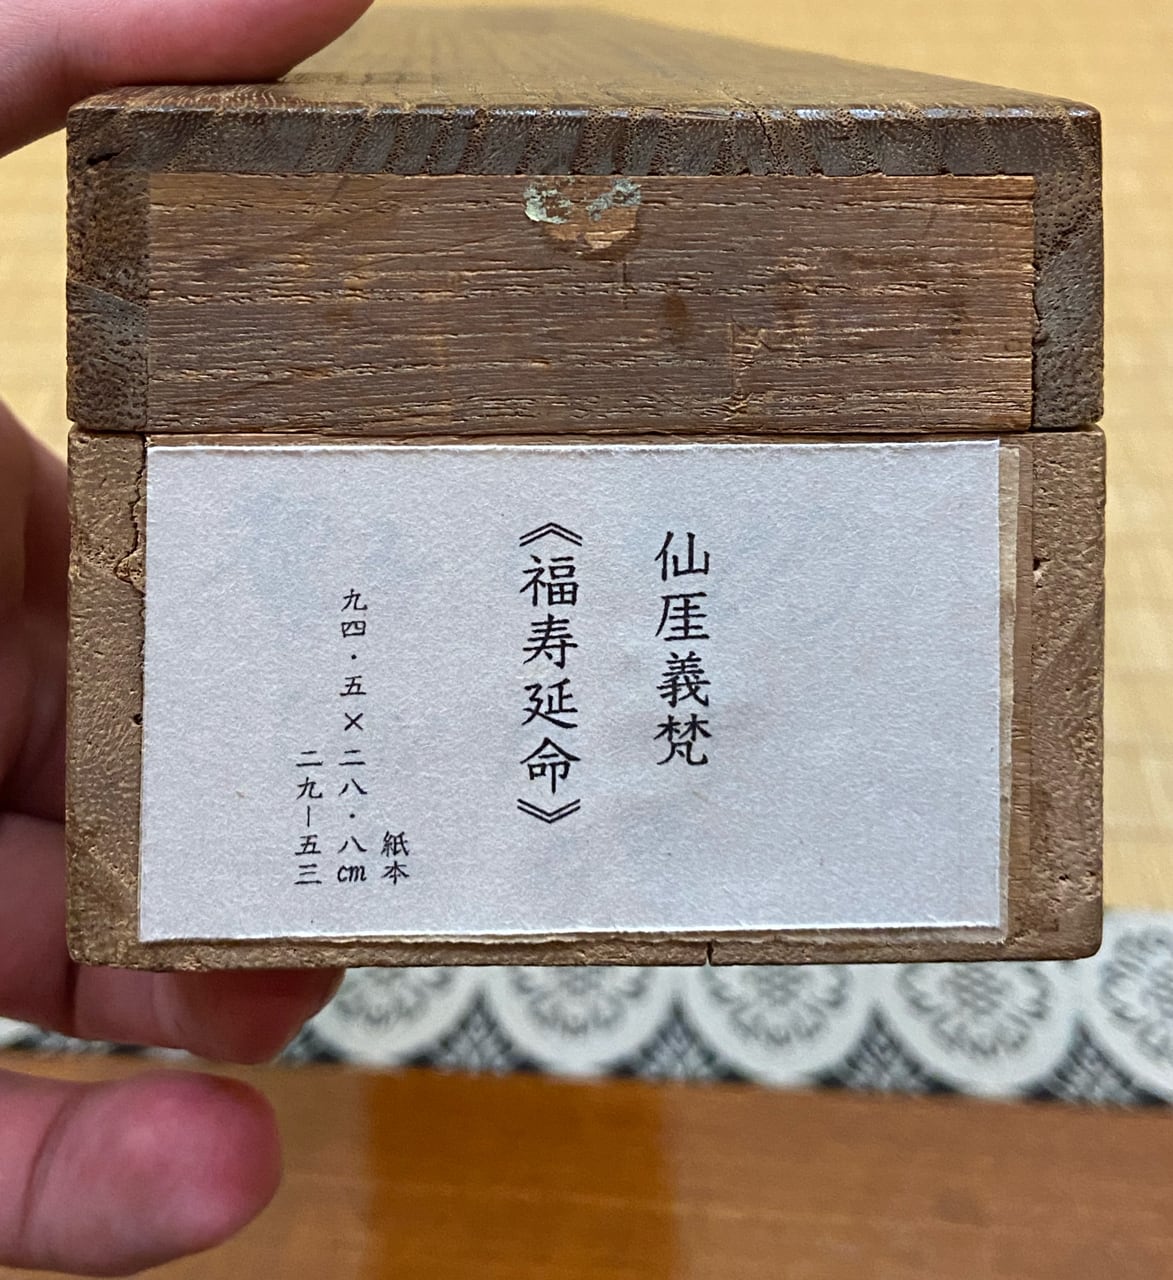 仙厓義梵
《福寿延命》
紙本
九四・五×二八・八cm
二九―五三